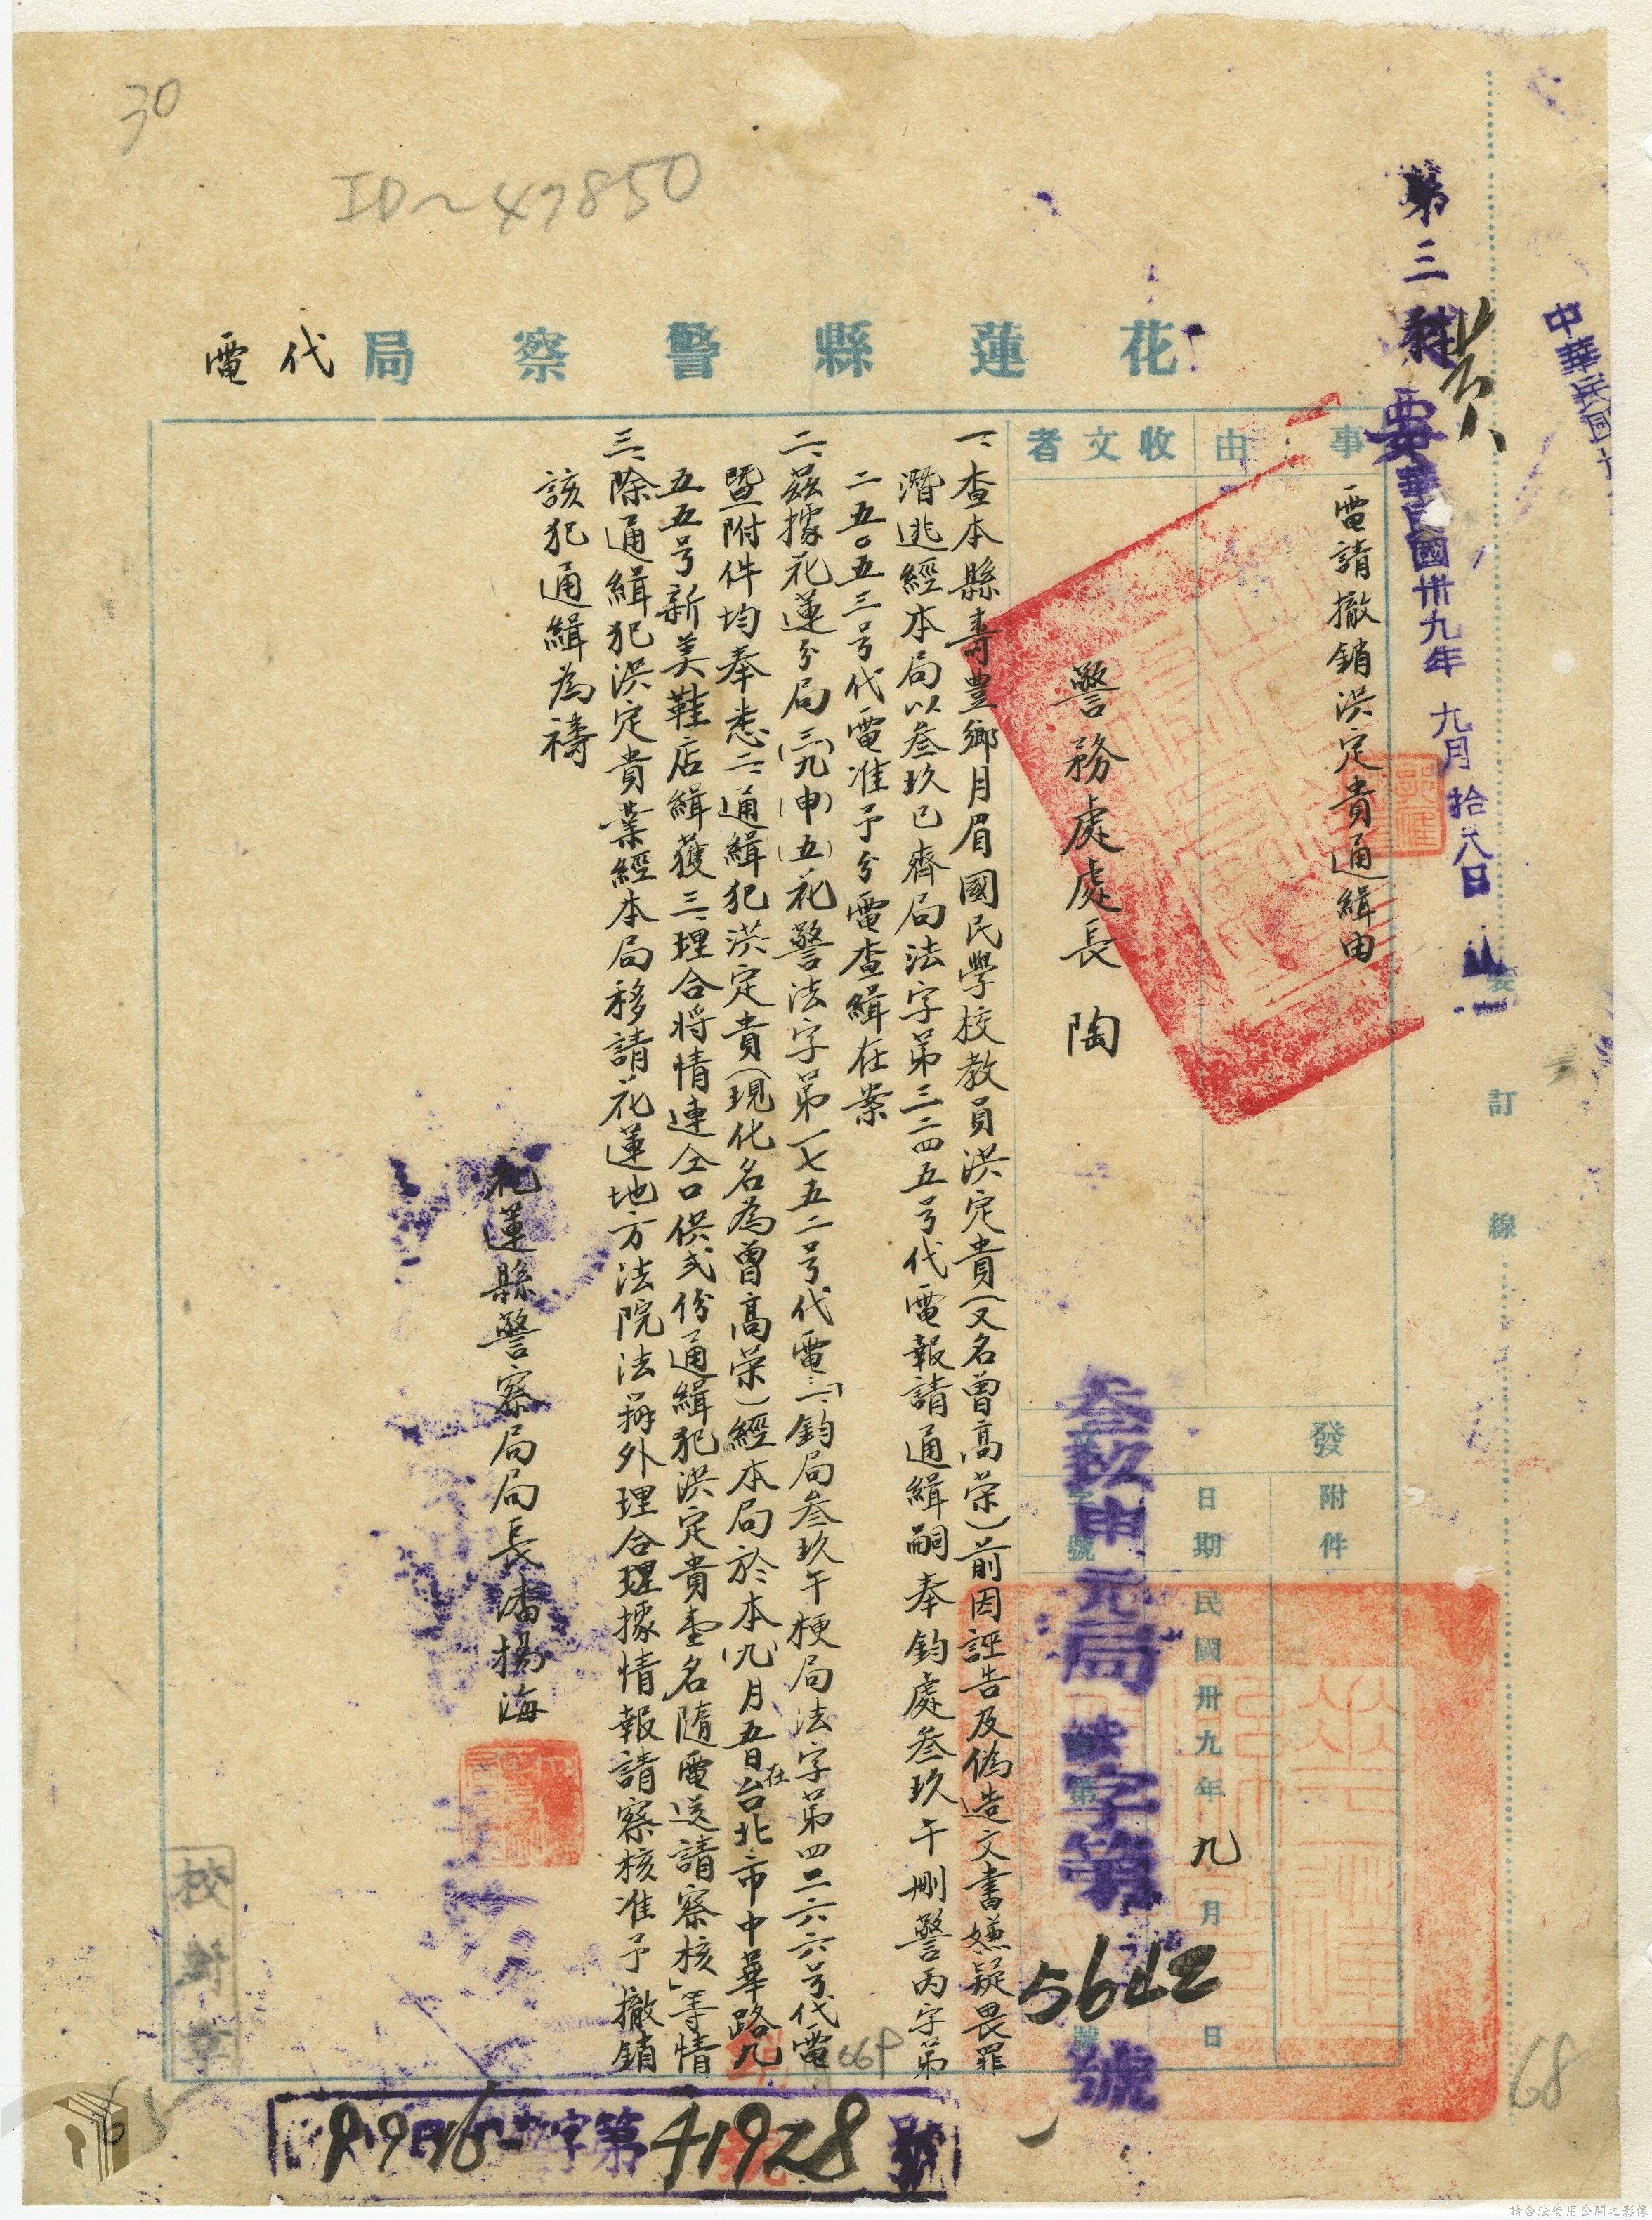 30
ID~47850
花蓮縣警察局代電
第三科
中華民國
華民國卅九年九月拾八日
裝訂線
事由
電請撤銷洪定貴通緝由
收文者
警務處處長 陶
附件
發文
日期
民國卅九年九月 日
字號
叁玖申元局法字第5642號
一、查本縣壽豊鄉月眉國民學校教員洪定貴(又名曾高荣)前因誣告及偽造文書嫌疑畏罪
潛逃經本局以叁玖巳齊局法字第三二四五号代電報請通緝嗣奉鈞處叁玖午刪警丙字第
二五〇五三号代電准予分電查緝在案
二、茲據花蓮分局(三九)(申)(五)花警法字第一七五二号代電「一、鈞局叁玖午梗局法字第四二六六号代電
暨附件均奉悉二、通緝犯洪定貴(現化名為曾高荣)經本局於本(九)月五日在台北市中華路九
五五号新美鞋店緝獲三、理合將情連仝口供弍份通緝犯洪定貴壹名隨電送請察核」等情
三、除通緝犯洪定貴業經本局移請花蓮地方法院法辦外理合理據情報請察核准予撤銷
該犯通緝為禱
花蓮縣警察局局長潘揚海
校對章
669
68
65
字第41928號
請合法使用公開之影像